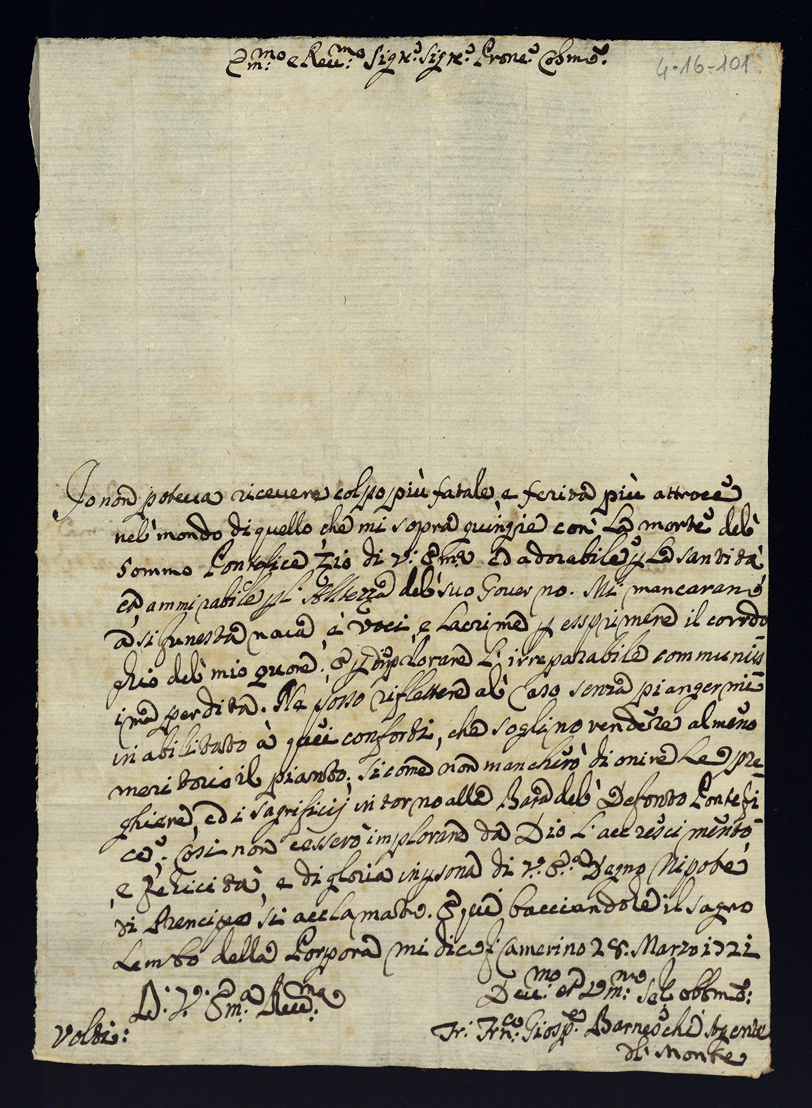 Em:mo e Reu:mo Sig.re Sig.re Prone Colmo:
4-16-101
Io non poteua riceuere colpo più fatale, e ferita più attroce
nel mondo di quello che mi sopra giungie con La morte del
Sommo Pontefice Zio di V: Em:a Ed adorabile p La santità
ed ammirabile p L'Altezza del suo Gouerno. Mi mancaran
a si funesta noua è voci, e Lacrime p essprimere il corrdo
glio del mio quore, e p deplorare L'irreparabile communiss
ima perdita. Ne posso riflettere al Caso senza piangermi
inabilitato à quei conforti, che sogliino rendere almeno
meritorio il pianto. Si come non mancherò di onire Le pre-
ghiere, ed i sagrificij intorno alla Bara del Defonto Pontefi
ce: Cosi non cesserò implorare da Dio L'accrescimento
e felicità, e di gloria in psona di V: E:a Degno Nipote
di Prencipe si acclamato. E qui bacciandole il sagro
Lembo della Porpora mi dico Camerino 28. Marzo 1721
D: V: Em:a Reu:ma
Deu:mo et Um:mo Se: obbmo:
Volti:
Fr: Frn:co Giosp:e Barneschi Agente
di Monte